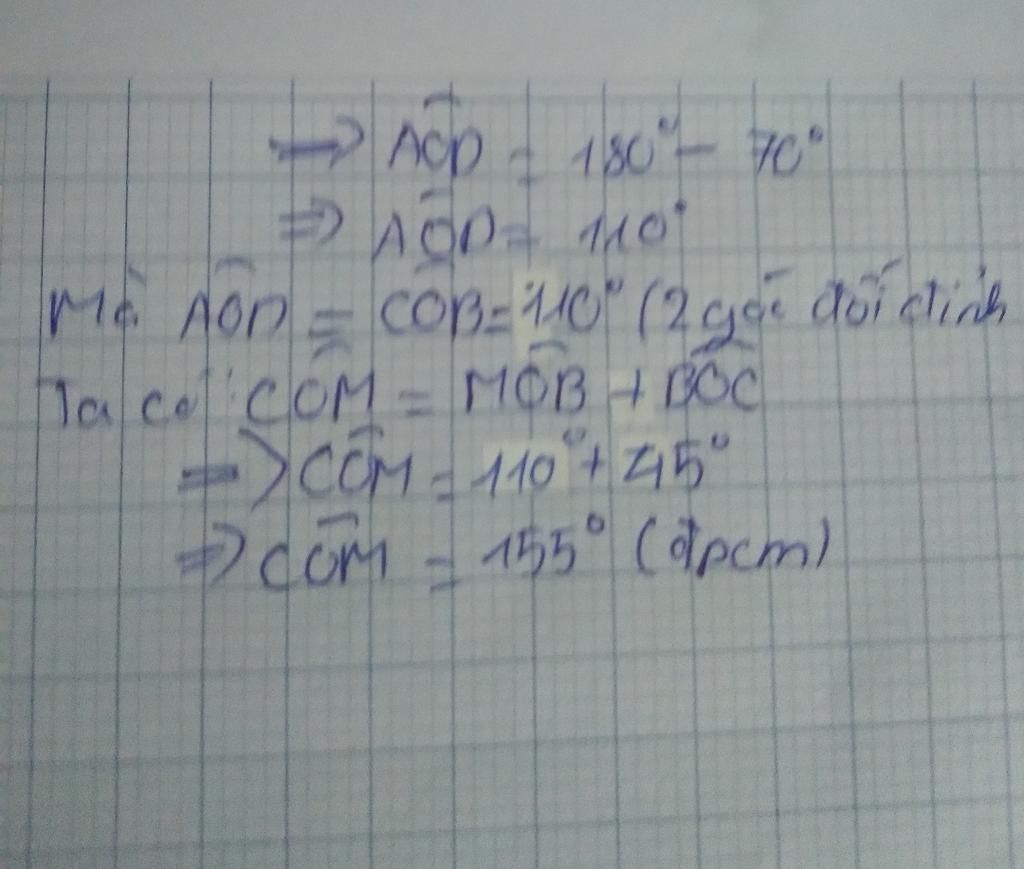 ⇒ AÔD = 180° - 70°
⇒ AÔD = 110°
Mà AÔD = CÔB = 110° (2 góc đối đỉnh
Ta có: CÔM = MÔB + BÔC
⇒ CÔM = 110° + 45°
⇒ CÔM = 155° (đpcm)